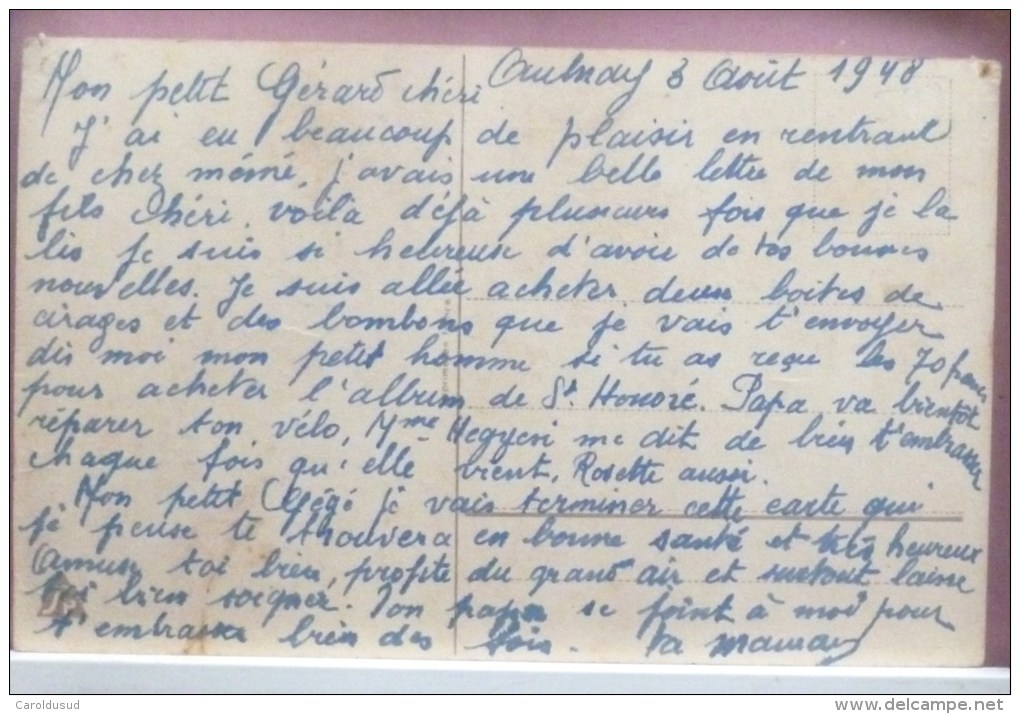 Aulnay 3 Août 1948
Mon petit Gérard chéri
J'ai eu beaucoup de plaisir en rentrant
de chez mémé, j'avais une belle lettre de mon
fils chéri, voilà déjà plusieurs fois que je la
lis je suis si heureuse d'avoir de tes bonnes
nouvelles. Je suis allée acheter deux boites de
cirages et des bombons que je vais t'envoyer
dis moi mon petit homme si tu as reçu les 70 francs
pour acheter l'album de St Honoré. Papa va bientôt
réparer ton vélo, Mme Hegyesi me dit de bien t'embrasser
chaque fois qu'elle vient, Rosette aussi.
Mon petit Gégé je vais terminer cette carte qui
je pense te trouvera en bonne santé et très heureux
Amuse toi bien, profite du grand air et surtout laisse
toi bien soigner. Ton papa se joint à moi pour
t'embrasser bien des fois. Ta maman
Caroldusud
www.delcampe.net